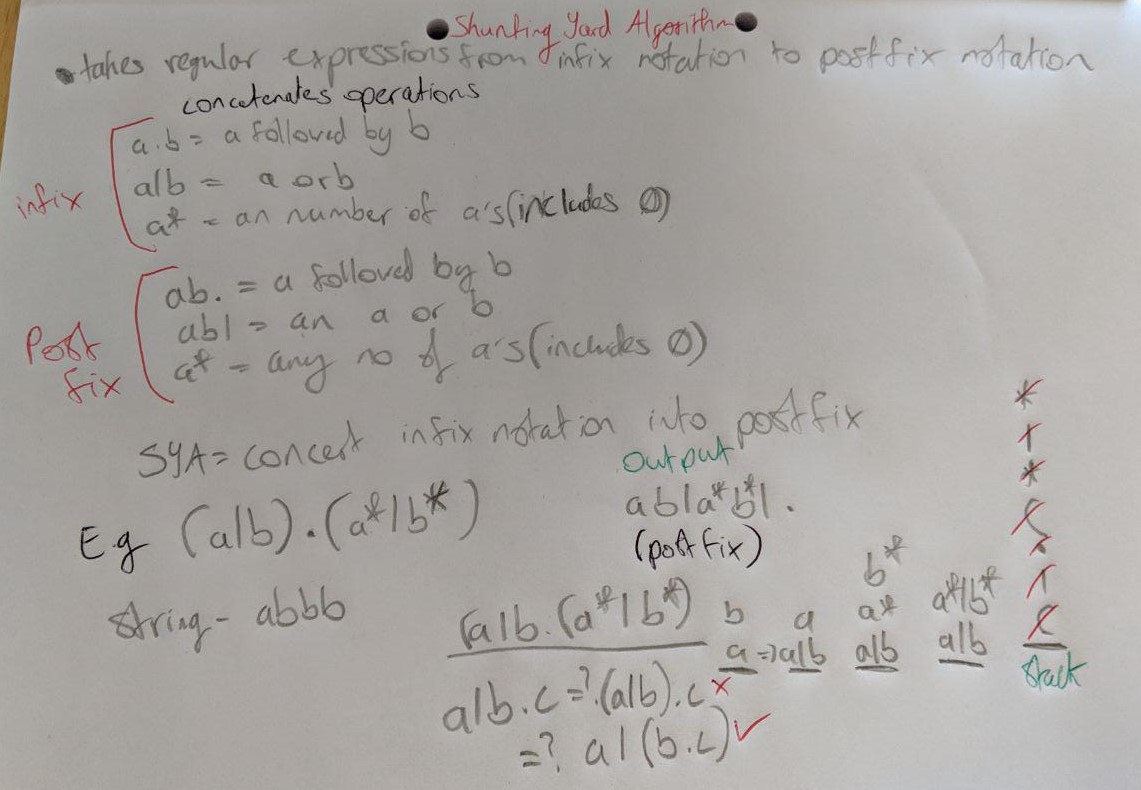 Shunting Yard Algorithm
takes regular expressions from infix notation to postfix notation
concatenates operations
infix
a.b = a followed by b
a|b = a or b
a* = an number of a's (includes ∅)
Post fix
ab. = a followed by b
ab| = an a or b
a* = any no of a's (includes ∅)
SYA = concert infix notation into postfix
Output
E.g (a|b).(a*|b*)
ab|a*b*|.
(postfix)
String - abbb
(a|b.(a*|b*)
b a b* a*|b*
a* 
a => a|b a|b a|b
Stack
a|b.c =? (a|b).c ×
=? a|(b.c) ✓